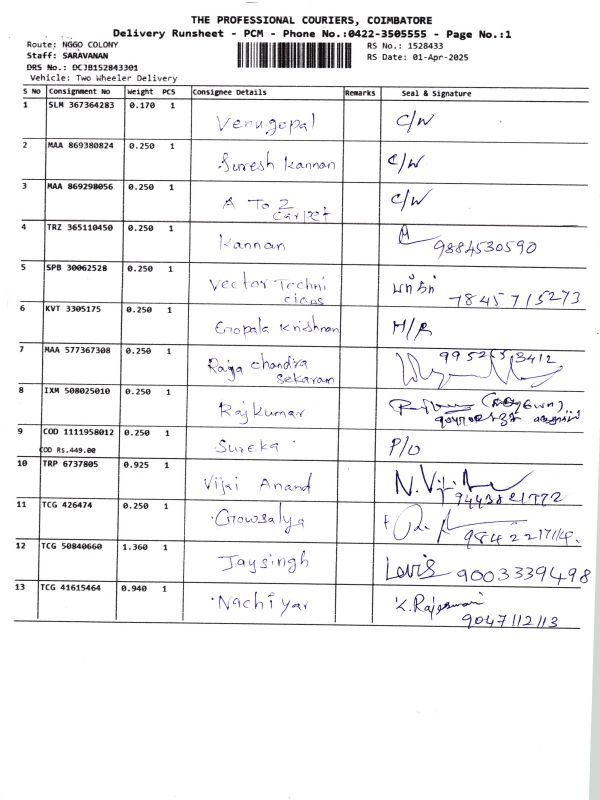 THE PROFESSIONAL COURIERS, COIMBATORE
Delivery Runsheet - PCM - Phone No.:0422-3505555 - Page No.:1
Route: NGGO COLONY RS No.: 1528433
Staff: SARAVANAN RS Date: 01-Apr-2025
DRS No.: DCJB152843301
Vehicle: Two Wheeler Delivery
S No Consignment No Weight PCS Consignee Details Remarks Seal & Signature
1 SLM 367364283 0.170 1 Venugopal C/W
2 MAA 869380824 0.250 1 Suresh Kannan C/W
3 MAA 869298056 0.250 1 A To Z C/W
Carpet
4 TRZ 365110450 0.250 1 Kannan 9884530590
5 SPB 30062528 0.250 1 Vector Techni
cians 7845715273
6 KVT 3305175 0.250 1 Gopala Krishnan
7 MAA 577367308 0.250 1 Raja Chandra
Sekaran
8 IXM 508025010 0.250 1 Rajkumar
9 COD 1111958012 0.250 1 Sureka P/O
COD RS.449.00
10 TRP 6737805 0.925 1 Vijai Anand
11 TCG 426474 0.250 1 Gowsalya
12 TCG 50840660 1.360 1 Jaysingh 9003339498
13 TCG 41615464 0.940 1 Nachiyar K. Rajeswari
9047112113